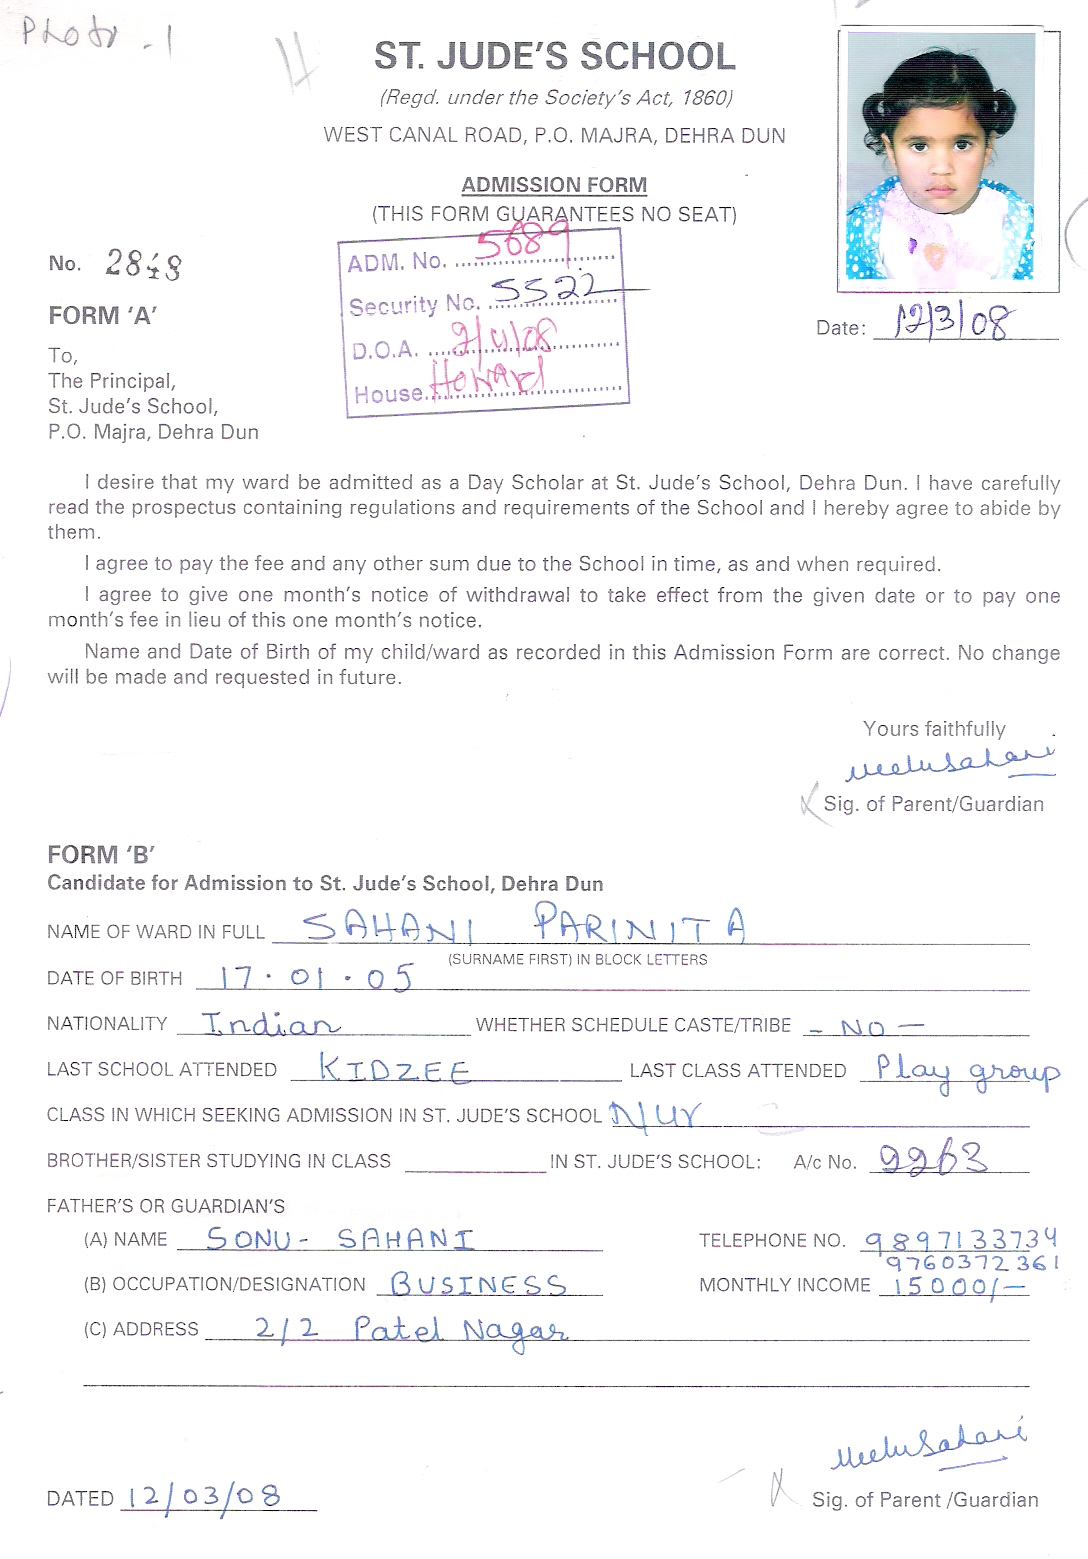 Photo - 1
ST. JUDE'S SCHOOL
(Regd. under the Society's Act, 1860)
WEST CANAL ROAD, P.O. MAJRA, DEHRA DUN
ADMISSION FORM
(THIS FORM GUARANTEES NO SEAT)
No. 2848
ADM. No. 5689
Security No. 5522
D.O.A. 2/4/08
House Howard
Date: 12/3/08
FORM 'A'
To,
The Principal,
St. Jude's School,
P.O. Majra, Dehra Dun
I desire that my ward be admitted as a Day Scholar at St. Jude's School, Dehra Dun. I have carefully
read the prospectus containing regulations and requirements of the School and I hereby agree to abide by
them.
I agree to pay the fee and any other sum due to the School in time, as and when required.
I agree to give one month's notice of withdrawal to take effect from the given date or to pay one
month's fee in lieu of this one month's notice.
Name and Date of Birth of my child/ward as recorded in this Admission Form are correct. No change
will be made and requested in future.
Yours faithfully
Neelu Sahani
Sig. of Parent/Guardian
FORM 'B'
Candidate for Admission to St. Jude's School, Dehra Dun
NAME OF WARD IN FULL SAHANI PARINITA
(SURNAME FIRST) IN BLOCK LETTERS
DATE OF BIRTH 17·01·05
NATIONALITY Indian WHETHER SCHEDULE CASTE/TRIBE - NO -
LAST SCHOOL ATTENDED KIDZEE LAST CLASS ATTENDED Play group
CLASS IN WHICH SEEKING ADMISSION IN ST. JUDE'S SCHOOL Nur
BROTHER/SISTER STUDYING IN CLASS IN ST. JUDE'S SCHOOL: A/c No. 9963
FATHER'S OR GUARDIAN'S
(A) NAME SONU- SAHANI TELEPHONE NO. 9897133734
9760372361
(B) OCCUPATION/DESIGNATION BUSINESS MONTHLY INCOME 15000/-
(C) ADDRESS 2/2 Patel Nagar
Neelu Sahani
DATED 12/03/08 Sig. of Parent /Guardian